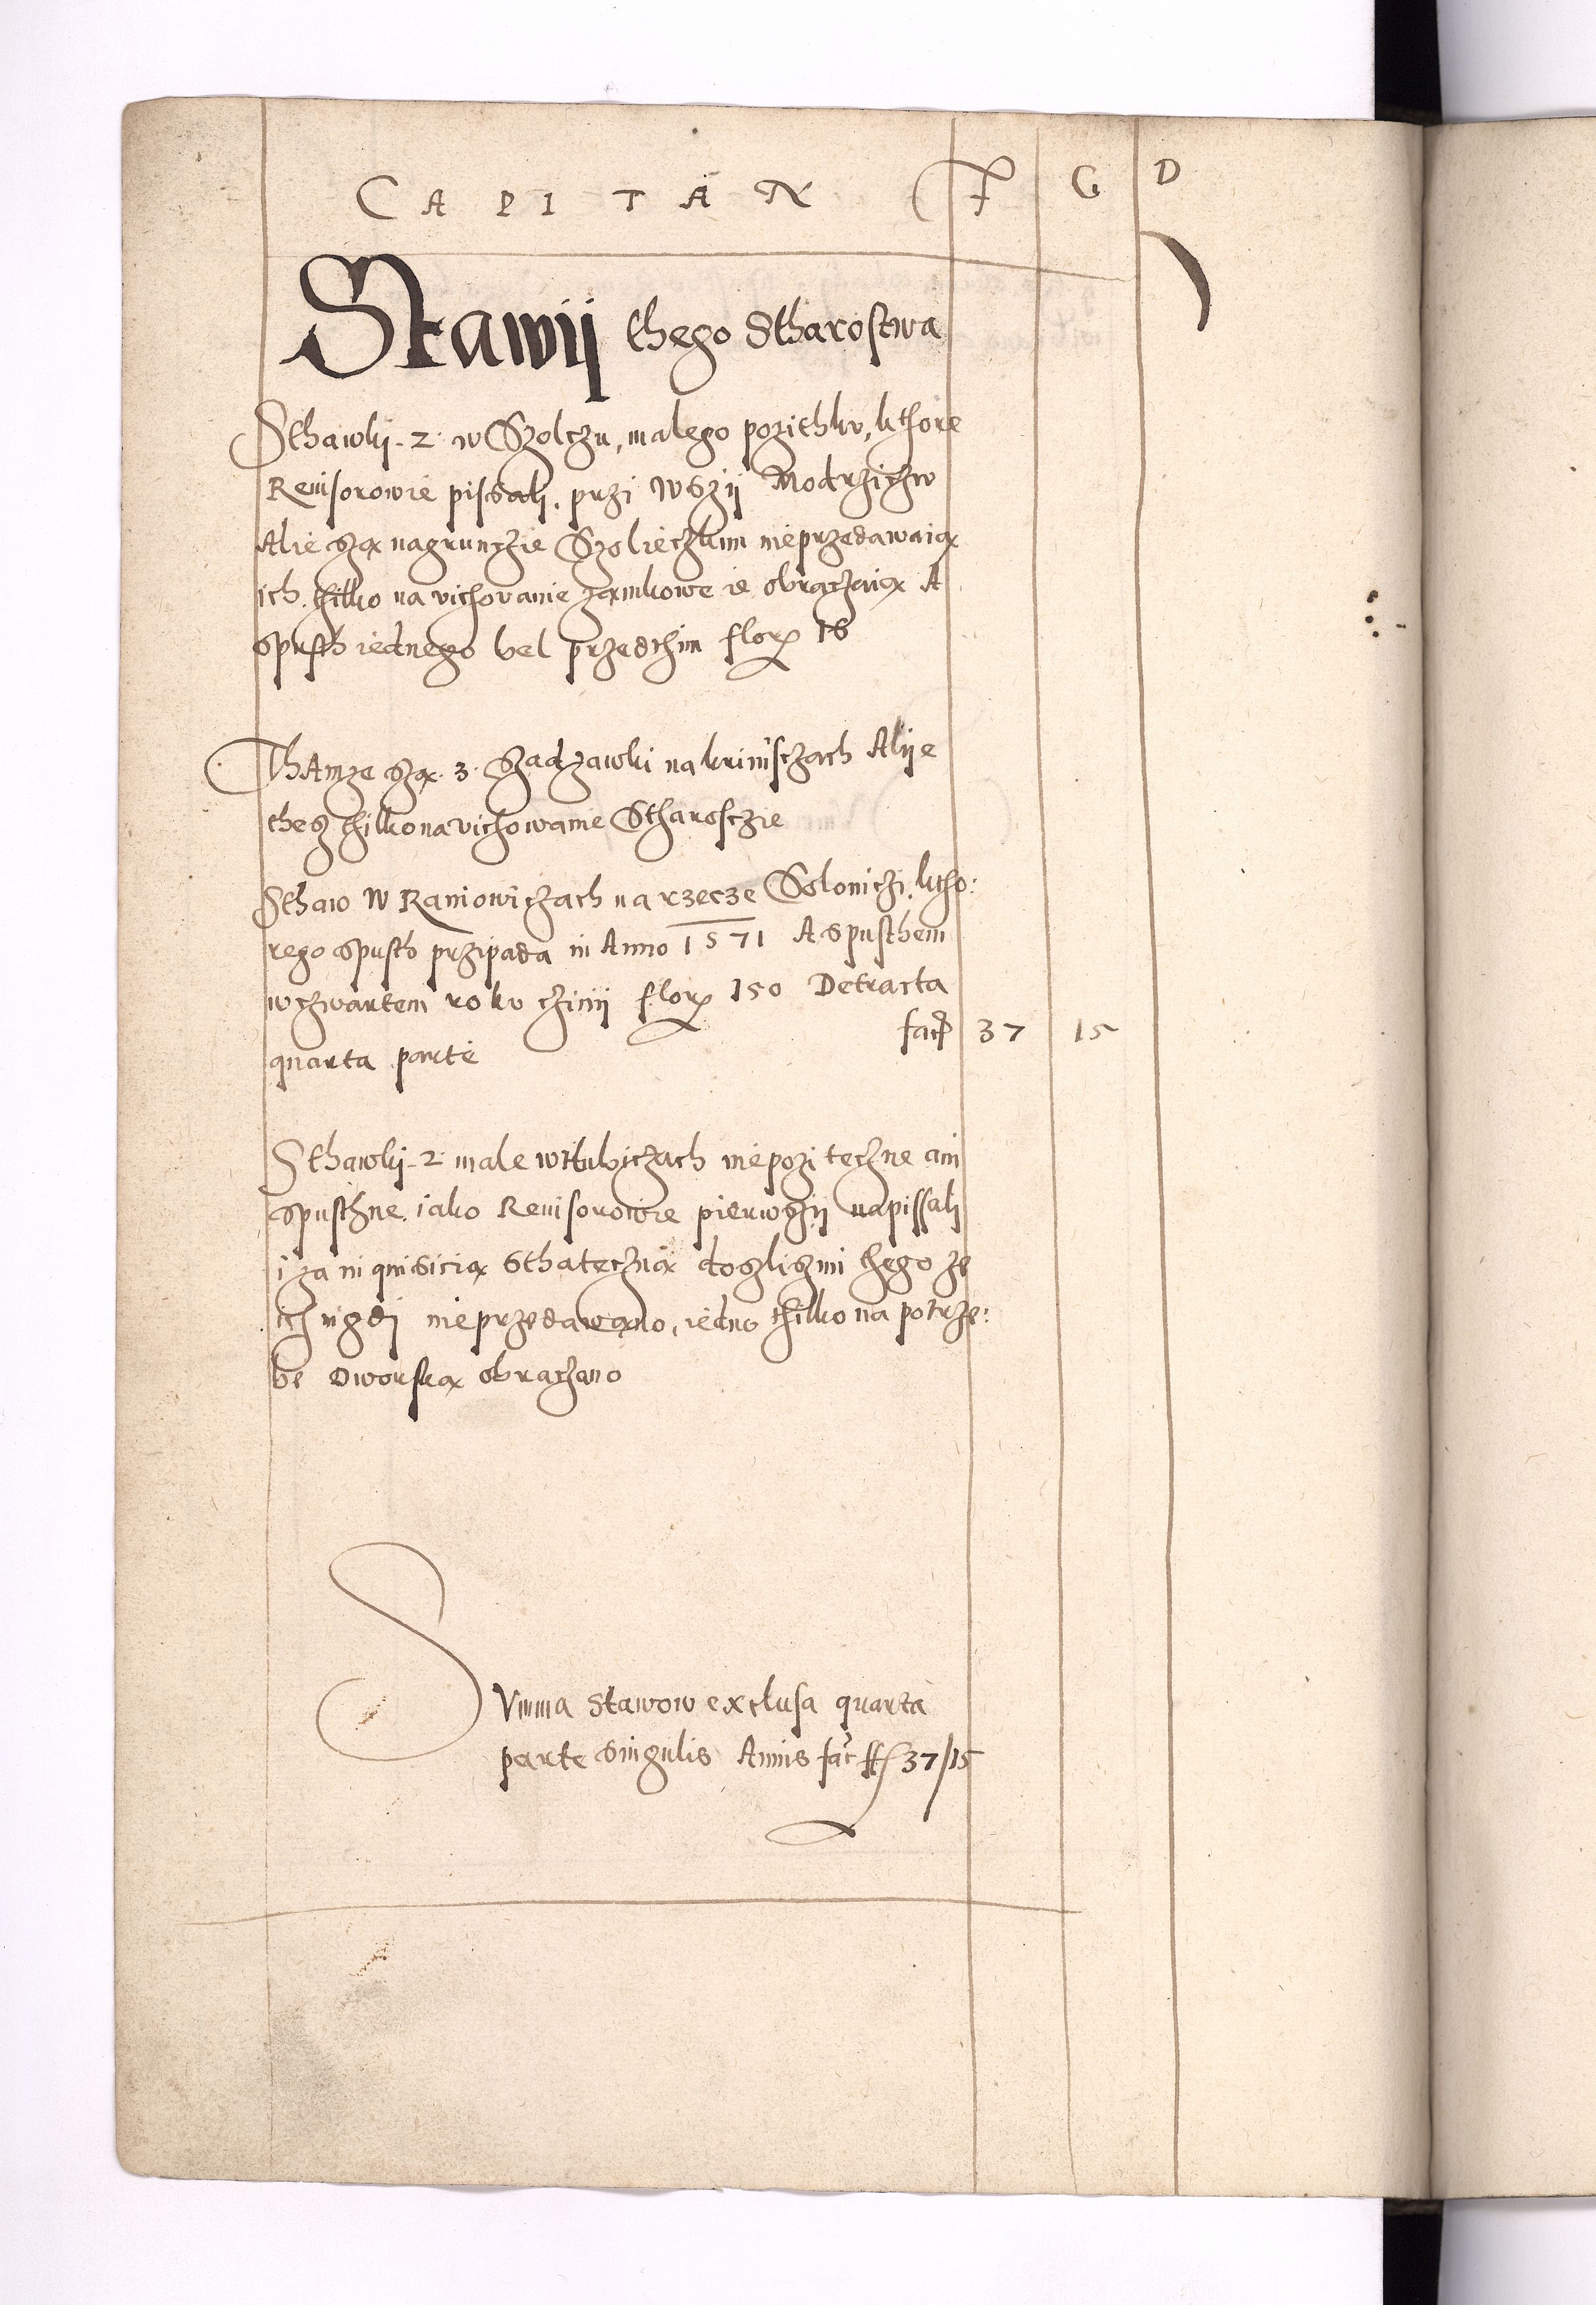 CAPITAN F G D
Stawij thego Stharostwa
Sthawkj 2 w Szolczu, malego pozithkv, kthore
Reuisorowie pissali, przi wszij Modrzichw
Alie szą nagrunczie Szolieczkim nieprzedawaią
ich, thilko na vichovanie zamkowe ie obraczaią A
spusth iednego vel przedthim flor 16
Thamze szą 3 szadzawki na krinisczach Alije
thesz thilko na vichowanie Stharosczie
Sthaw w Raniowiczach na rzecze Soloniczi, ktho:
rego spusth przipada in Anno 1571 A spusthem
w czwartem rokv czinij flor 150 Detracta
quarta parte fact 37 15
Sthawkj 2 male w Stubiczach niepoziteczne ani
spusthne, iako Reuisorowie pierwszij napissali
i za inquisicią sthateczną doszlismi thego ze
ich nigdj nieprzedawano, iedno thilko na potrze:
be dworską obraczano
Summa stawow exclusa quarta
parte singulis Annis fac ff 37/15